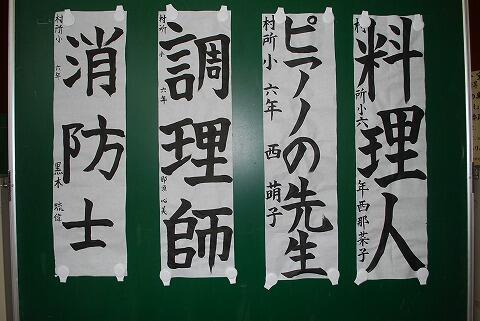 料理人
村所小六年西那菜子
ピアノの先生
村所小 六年 西 萌子
調理師
村所小 六年
消防士
村所小 六年 黒木